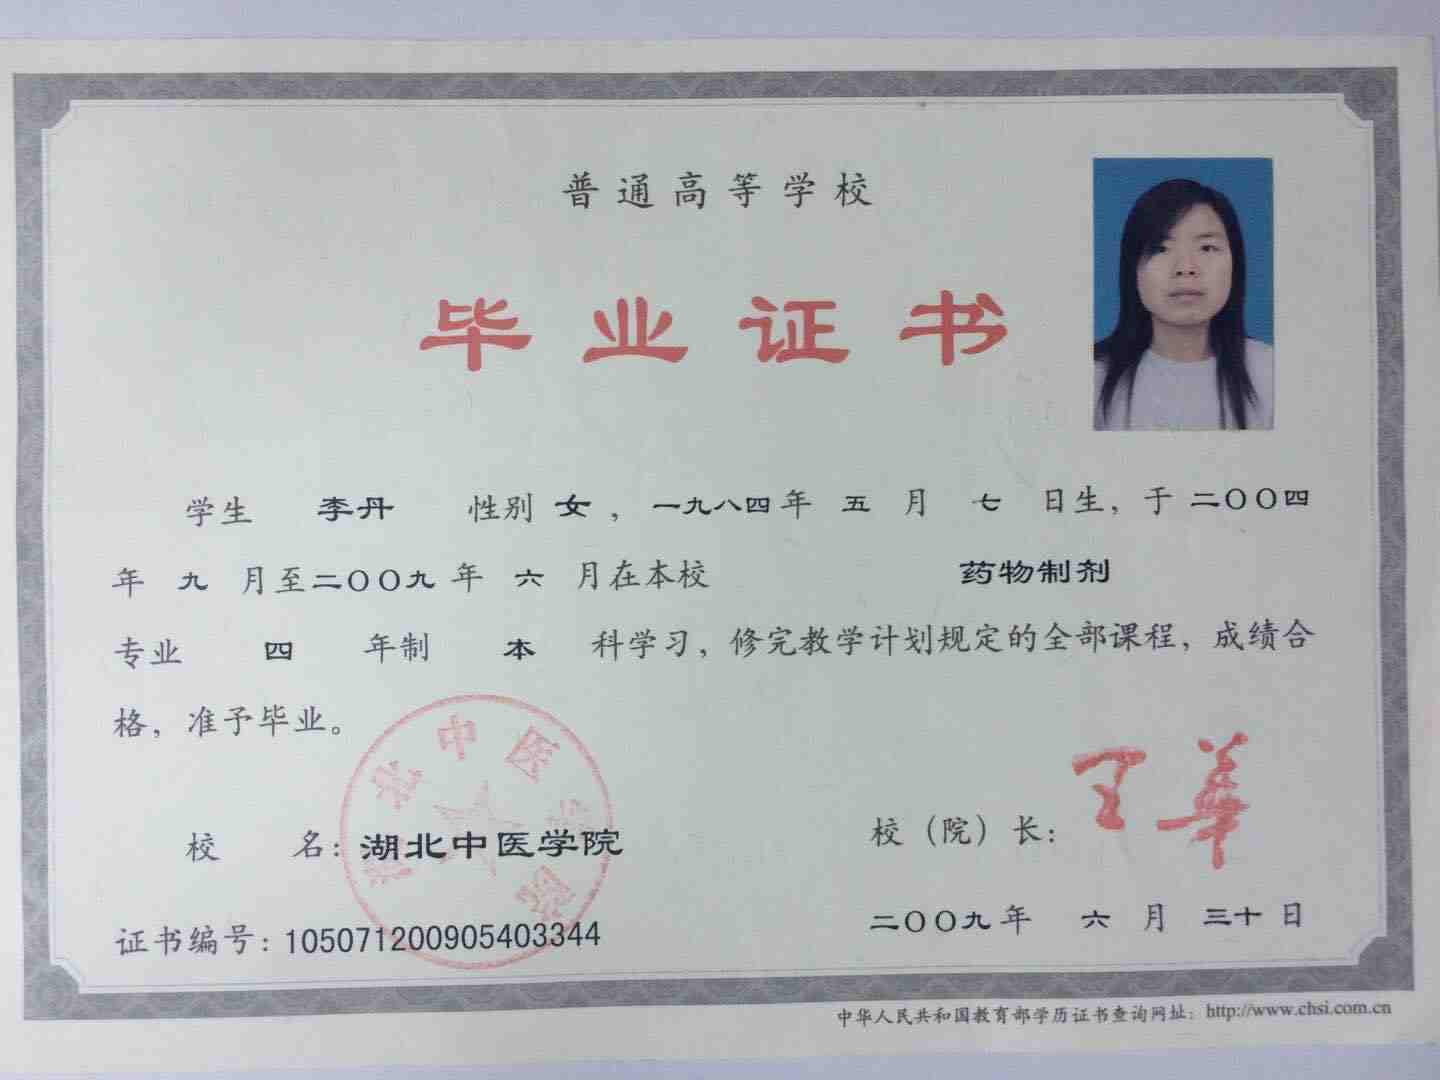 普通高等学校
毕业证书
学生 李丹 性别 女，一九八四年 五 月 七 日生，于 二〇〇四
年 九 月至二〇〇九 年 六 月在本校 药物制剂
专业 四 年制 本 科学习，修完教学计划规定的全部课程，成绩合
格，准予毕业。
湖北中医学院
校 名：湖北中医学院
校（院）长：王華
证书编号：105071200905403344
二〇〇九年 六 月 三十 日
中华人民共和国教育部学历证书查询网址：http://www.chsi.com.cn